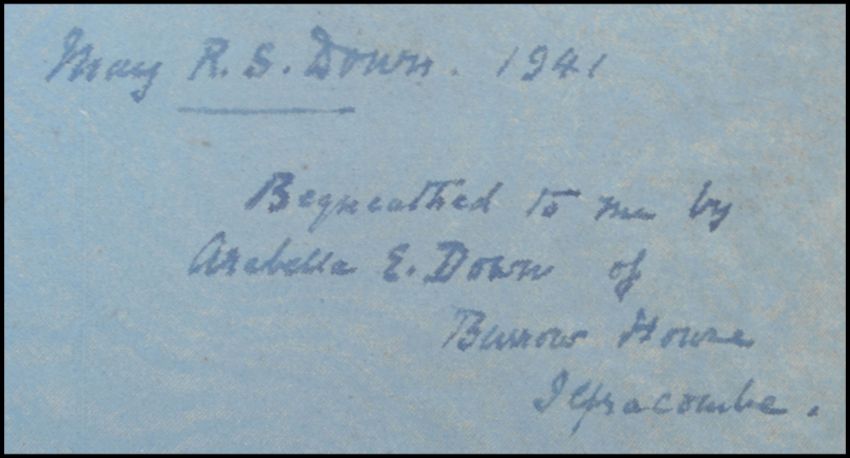 Mary R. S. Down. 1941
Bequeathed to me by
Arabella E. Down of
Burrow House
Ilfracombe.